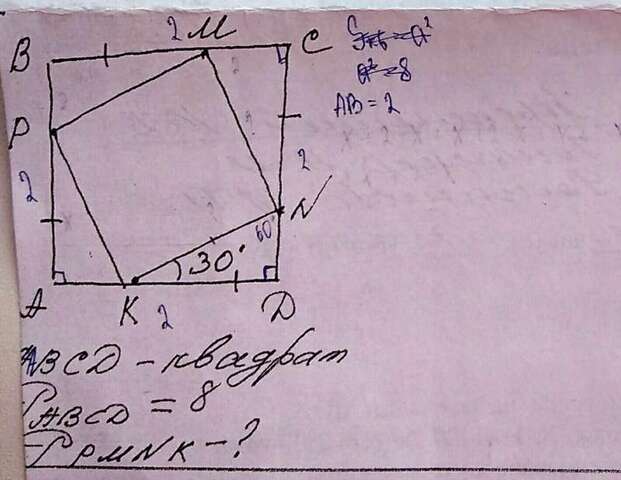 2 M
B C
P
2
2
N
60°
30°
A K 2 D
AB = 2
ABCD - квадрат
P ABCD = 8
P PMNK - ?